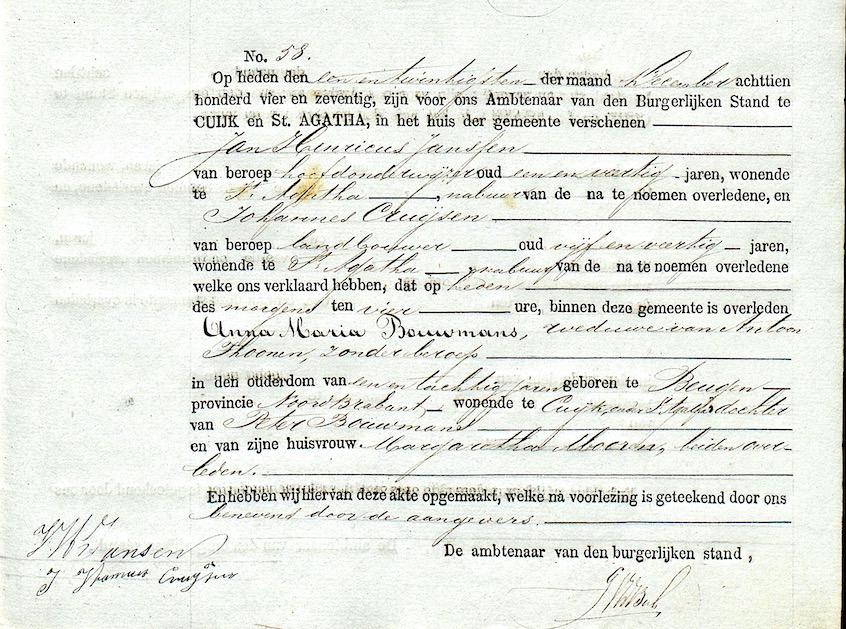 No. 58.
Op heden den een en twintigsten der maand December achttien
honderd vier en zeventig, zijn voor ons Ambtenaar van den Burgerlijken Stand te
CUIJK en St. AGATHA, in het huis der gemeente verschenen
Jan Henricus Janssen
van beroep hoofdonderwijzer oud een en veertig jaren, wonende
te St Agatha, nabuur van de na te noemen overledene, en
Johannes Cruijsen
van beroep landbouwer oud vijf en veertig jaren,
wonende te St Agatha nabuur van de na te noemen overledene
welke ons verklaard hebben, dat op heden
des morgens ten vier ure, binnen deze gemeente is overleden
Anna Maria Bouwmans, weduwe van Antoon
Thoonen, zonder beroep
in den ouderdom van een en tachtig jaren geboren te Beugen
provincie Noord Brabant, wonende te Cuijk en St Agatha dochter
van Peter Bouwmans
en van zijne huisvrouw Margaretha Mooren, beiden over-
leden.
En hebben wij hiervan deze akte opgemaakt, welke na voorlezing is geteekend door ons
benevens door de aangevers.
De ambtenaar van den burgerlijken stand,
Jansen